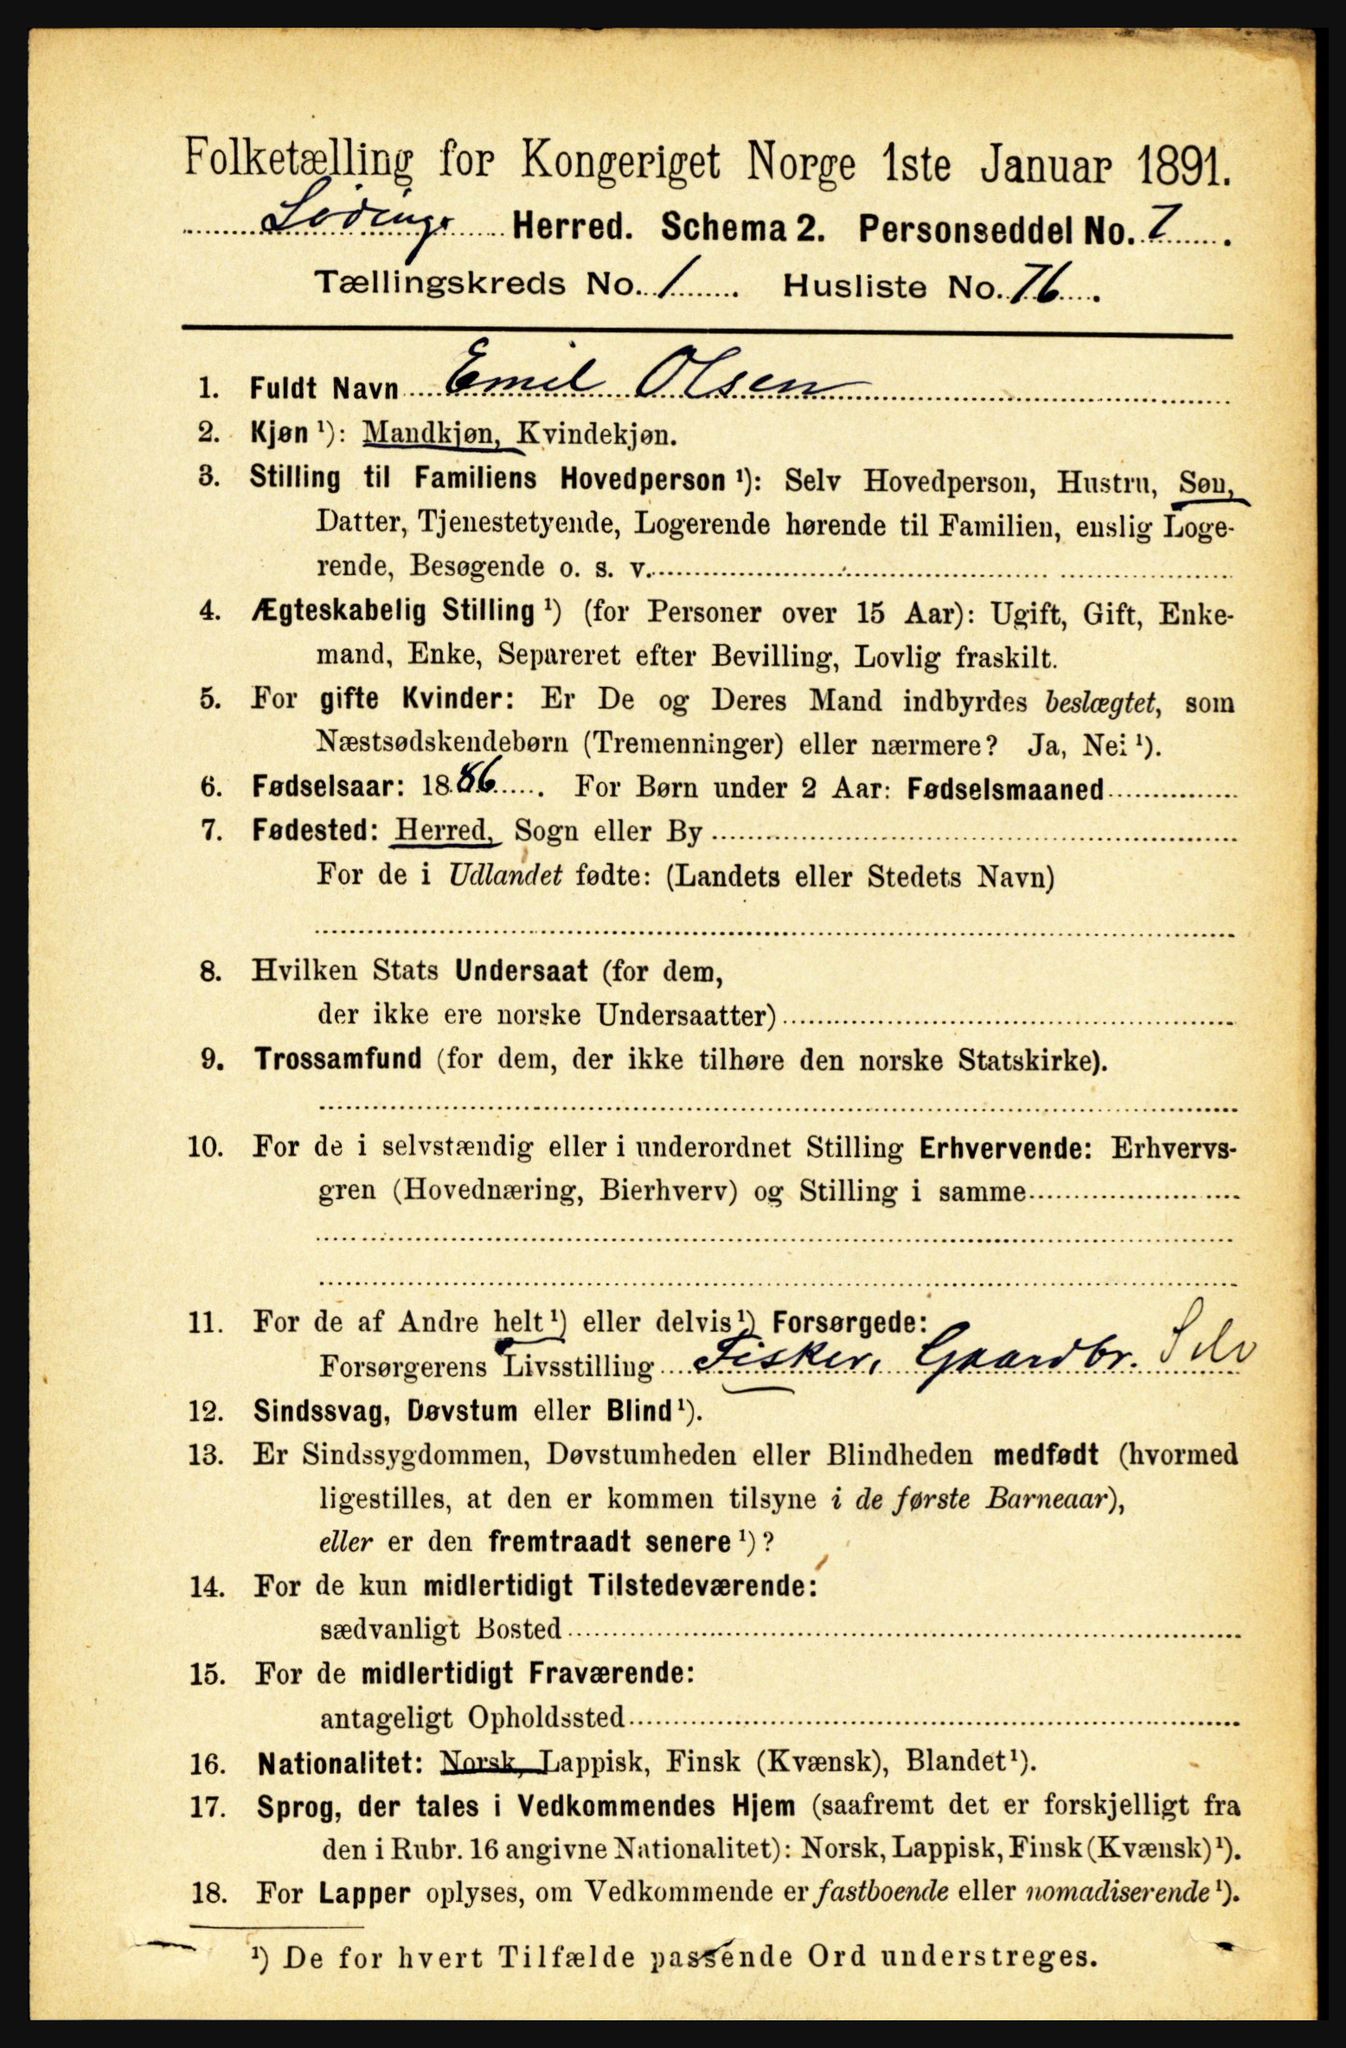 Folketælling for Kongeriget Norge 1ste Januar 1891.
Lødinge Herred. Schema 2. Personseddel No. 7.
Tællingskreds No. 1. Husliste No. 76.
1. Fuldt Navn Emil Olsen
2. Kjøn ¹): Mandkjøn, Kvindekjøn.
3. Stilling til Familiens Hovedperson ¹): Selv Hovedperson, Hustru, Søn,
Datter, Tjenestetyende, Logerende hørende til Familien, enslig Loge-
rende, Besøgende o. s. v.
4. Ægteskabelig Stilling ¹) (for Personer over 15 Aar): Ugift, Gift, Enke-
mand, Enke, Separeret efter Bevilling, Lovlig fraskilt.
5. For gifte Kvinder: Er De og Deres Mand indbyrdes beslægtet, som
Næstsødskendebørn (Tremenninger) eller nærmere? Ja, Nei ¹).
6. Fødselsaar: 1886. For Børn under 2 Aar: Fødselsmaaned
7. Fødested: Herred, Sogn eller By
For de i Udlandet fødte: (Landets eller Stedets Navn)
8. Hvilken Stats Undersaat (for dem,
der ikke ere norske Undersaatter)
9. Trossamfund (for dem, der ikke tilhøre den norske Statskirke).
10. For de i selvstændig eller i underordnet Stilling Erhvervende: Erhvervs-
gren (Hovednæring, Bierhverv) og Stilling i samme
11. For de af Andre helt ¹) eller delvis ¹) Forsørgede:
Forsørgerens Livsstilling Fisker, Gaardbr. Selv
12. Sindssvag, Døvstum eller Blind ¹).
13. Er Sindssygdommen, Døvstumheden eller Blindheden medfødt (hvormed
ligestilles, at den er kommen tilsyne i de første Barneaar),
eller er den fremtraadt senere ¹)?
14. For de kun midlertidigt Tilstedeværende:
sædvanligt Bosted
15. For de midlertidigt Fraværende:
antageligt Opholdssted
16. Nationalitet: Norsk, Lappisk, Finsk (Kvænsk), Blandet ¹).
17. Sprog, der tales i Vedkommendes Hjem (saafremt det er forskjelligt fra
den i Rubr. 16 angivne Nationalitet): Norsk, Lappisk, Finsk (Kvænsk) ¹).
18. For Lapper oplyses, om Vedkommende er fastboende eller nomadiserende ¹).
¹) De for hvert Tilfælde passende Ord understreges.